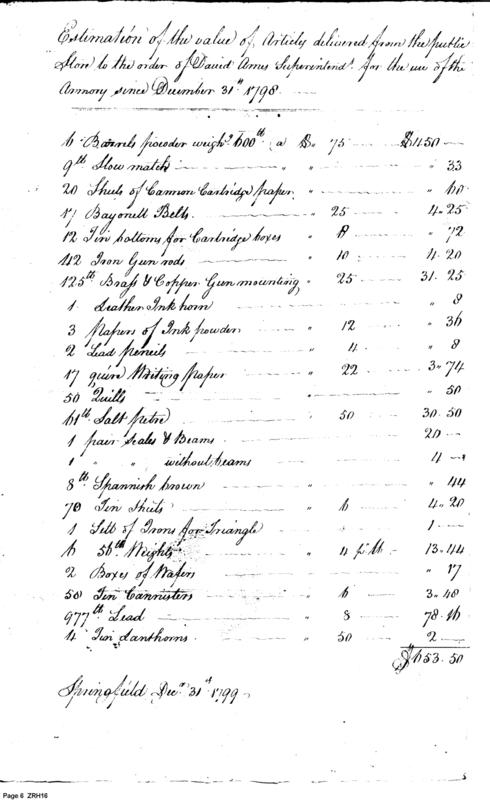 Estimation of the value of Articles delivered from the public
Store to the order of David Ames Superintendt. for the use of the
Armory since December 31st 1798
6 Barrels powder weighg 600lb a $ 75 $450 —
9lb Slow match " " 33
20 Sheets of Cannon Cartridge paper " " 60
17 Bayonett Belts " 25 4 " 25
12 Tin bottoms for Cartridge boxes " " 72
42 Iron Gun rods " 10 4 . 20
125lb Brass & Copper Gun mounting " 25 31 . 25
1 Leather Ink horn " 8
3 Papers of Ink powder " 12 " 36
2 Lead pencils " 4 " 8
17 quire Writing paper " 22 3 " 74
50 Quills " 50
61lb Salt petre " 50 30 . 50
1 pair Scales & Beams 20 —
1 " " without beams 4 —
8lb Spannish brown " 44
70 Tin Sheets " 6 4 . 20
1 Sett of Irons for Triangle 1 —
6 56lb Weights " 4 pr lb 13 . 44
2 Boxes of Wafers " 17
58 Tin Cannisters " 6 3 " 48
977lb Lead " 8 78 . 16
4 Tin Lanthorns " 50 2 —
$653 . 50
Springfield Decr 31st 1799
Page 6 ZRH16